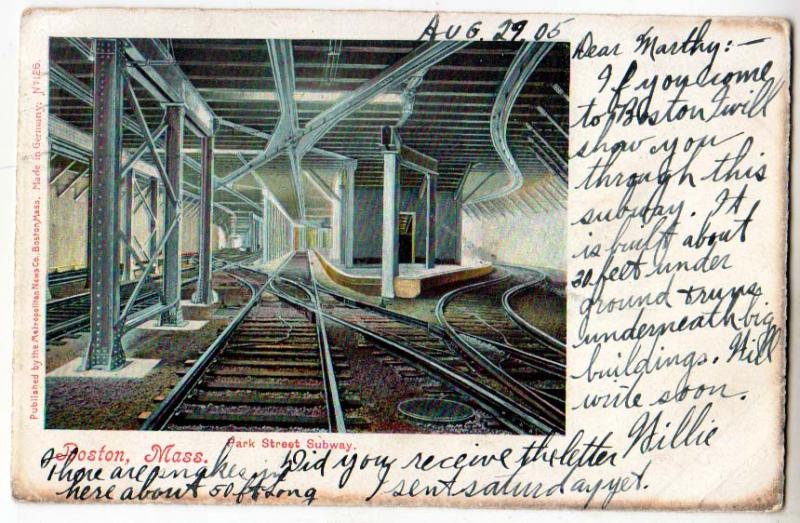 Aug. 29 05
Dear Marthy:-
If you come
to Boston I will
show you
through this
subway. It
is built about
20 feet under
ground & runs
underneath big
buildings. Will
write soon.
Willie
Did you receive the letter
I sent saturday yet.
There are snakes in
here about 50 ft song
Boston, Mass.
Park Street Subway.
Published by the Metropolitan News Co., Boston, Mass. Made in Germany. No 126.